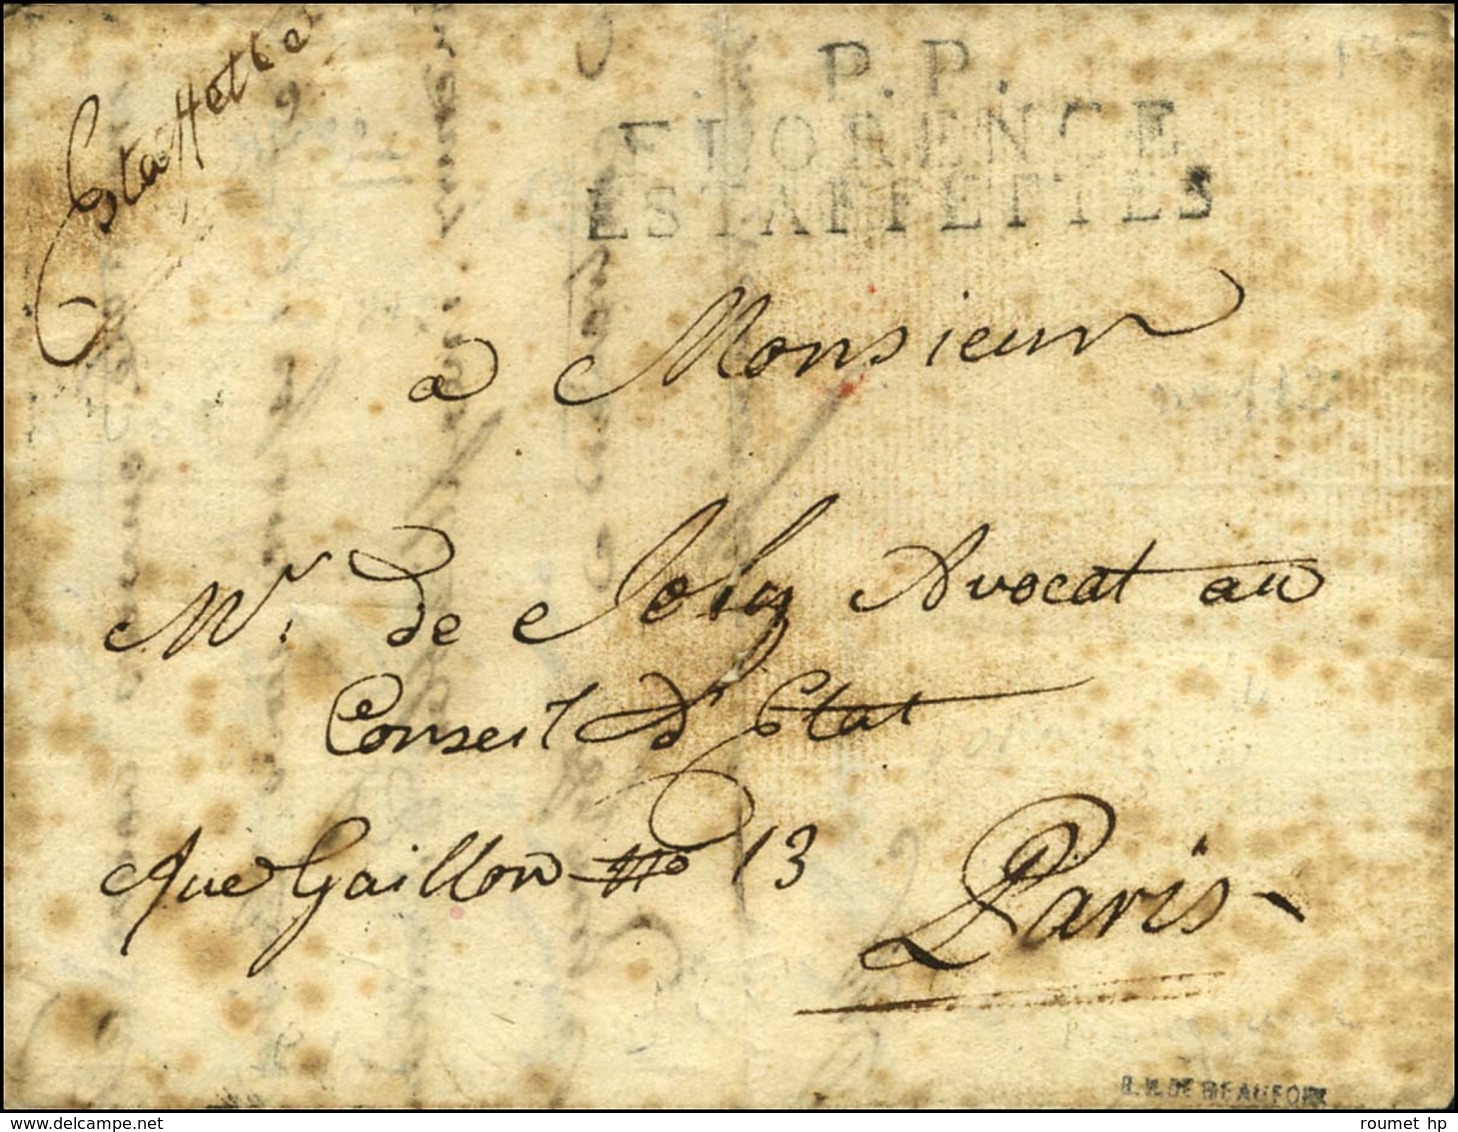 Estaffette
P. P.
FLORENCE
ESTAFFETTES
a Monsieur
Mr. de Joly Avocat au
Conseil d'Etat
Rue Gaillon No 13
Paris
DE BEAUFORT
roumet hp